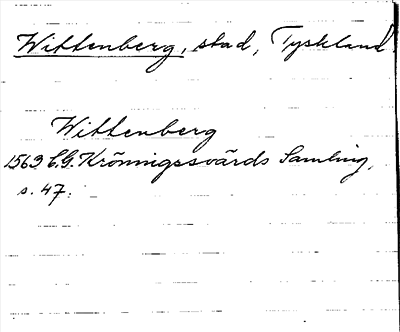 Wittenberg, stad, Tyskland.
Wittenberg
1563 C.G. Krönningssvärds Samling,
s. 47.